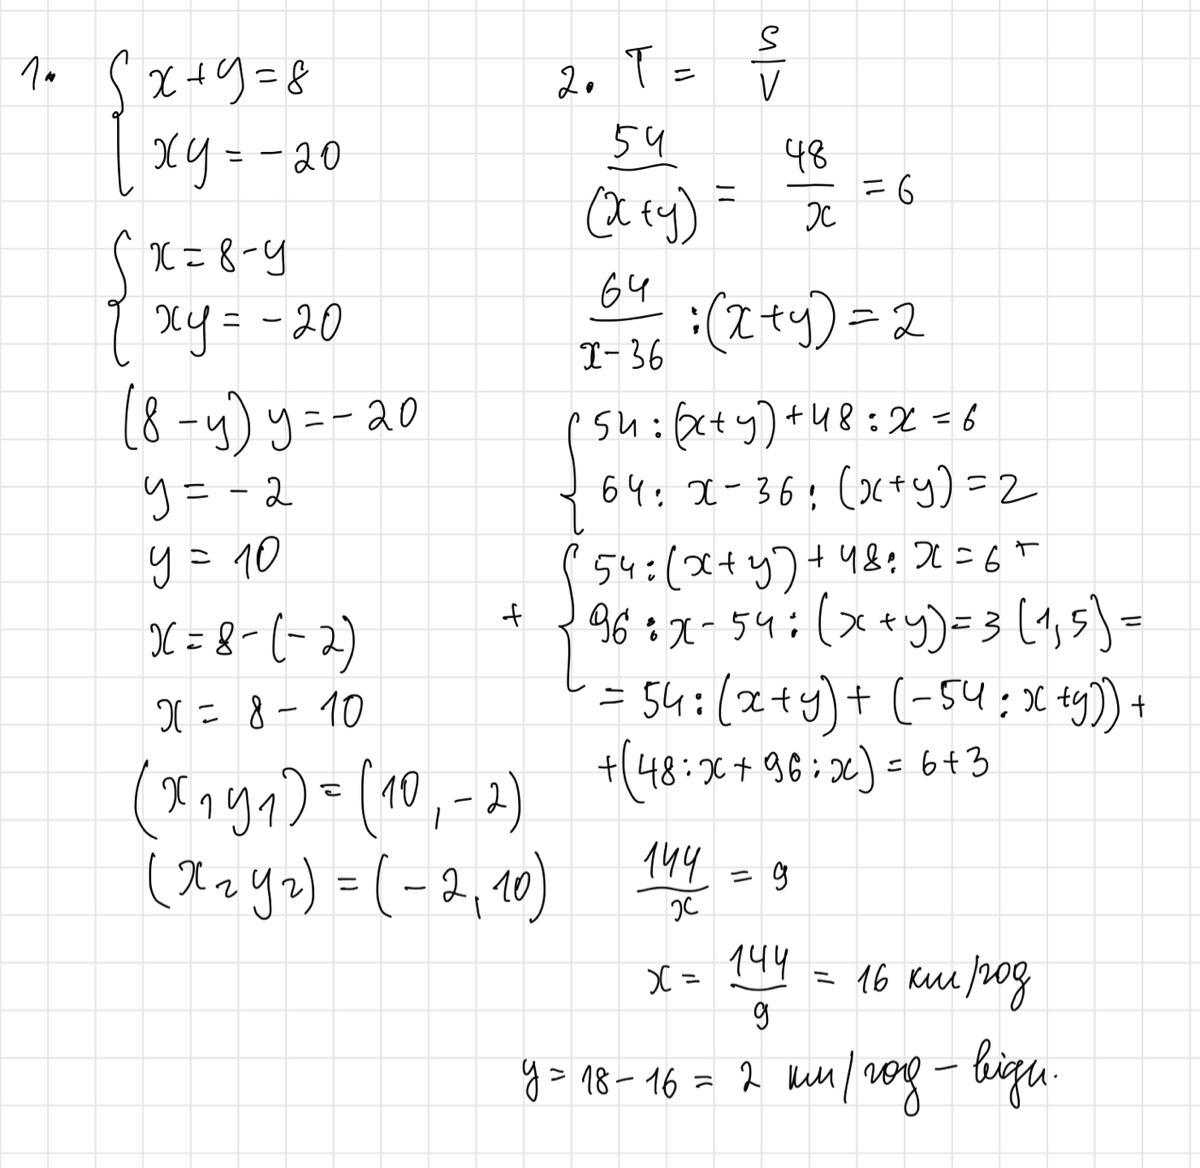 1. { x+y=8
xy=-20
{ x=8-y
xy=-20
(8-y)y=-20
y=-2
y=10
x=8-(-2)
x=8-10
(x₁y₁)=(10,-2)
(x₂y₂)=(-2,10)
2. T = S/V
54/(x+y) = 48/x = 6
64/x-36 :(x+y)=2
{ 54:(x+y)+48:x=6
64:x-36:(x+y)=2
+ { 54:(x+y)+48:x=6+
96:x-54:(x+y)=3(1,5)=
=54:(x+y)+(-54:x+y))+
+(48:x+96:x)=6+3
144/x = 9
x = 144/9 = 16 км/год
y=18-16=2 км/год - відп.